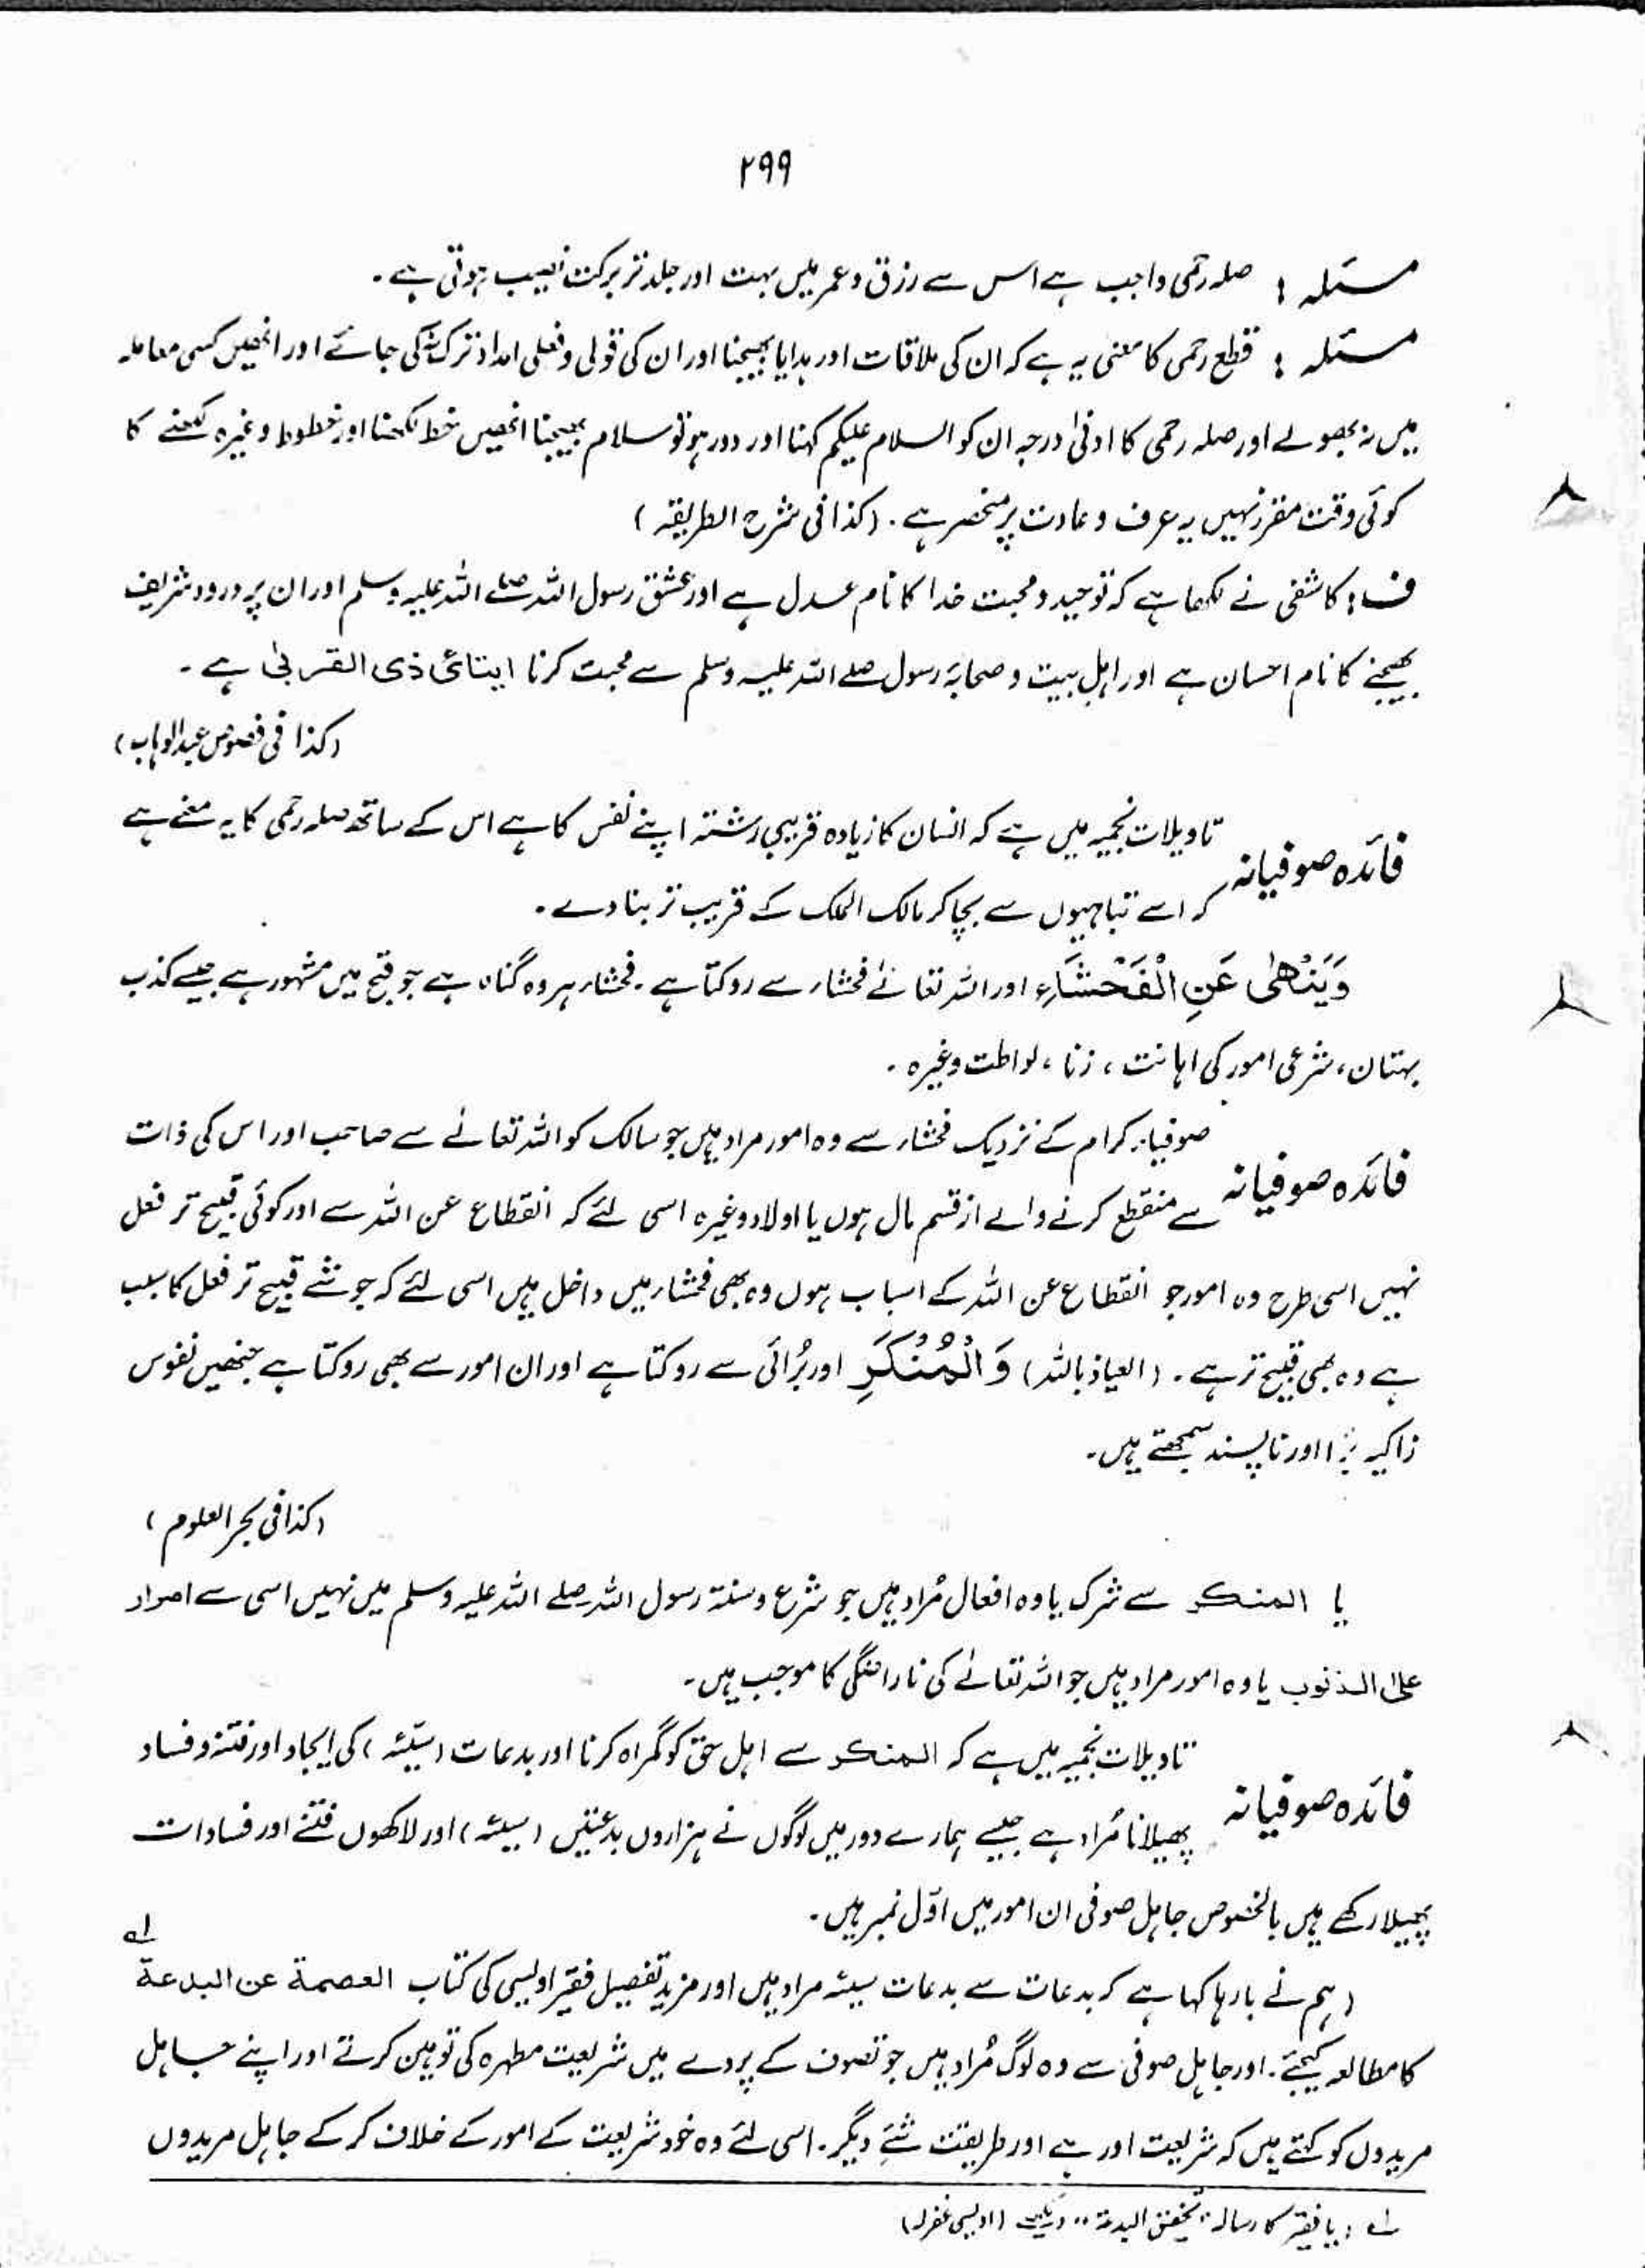 ۲۹۹
مسئلہ : صلہ رحمی واجب ہے اس سے رزق و عمر میں بہت اور جلد تر برکت نصیب ہوتی ہے۔
مسئلہ : قطع رحمی کا معنی یہ ہے کہ ان کی ملاقات اور ہدایا بھیجنا اور ان کی قولی و فعلی امداد ترک کی جائے اور انھیں کسی معاملہ
میں نہ بھولے اور صلہ رحمی کا ادنیٰ درجہ ان کو السلام علیکم کہنا اور دور ہو تو سلام بھیجنا انھیں خط لکھنا اور خطوط وغیرہ لکھنے کا
کوئی وقت مقرر نہیں یہ عرف و عادت پر منحصر ہے۔ (کذا فی شرح الطریقہ)
ف: کاشفی نے لکھا ہے کہ توحید و محبت خدا کا نام عدل ہے اور عشق رسول اللہ صلے اللہ علیہ وسلم اور ان پر درود شریف
بھیجنے کا نام احسان ہے اور اہلِ بیت و صحابۂ رسول صلے اللہ علیہ وسلم سے محبت کرنا ایتائ ذی القربیٰ ہے۔
(کذا فی فصوص عبدالوہاب)
فائدہ صوفیانہ تاویلات نجمیہ میں ہے کہ انسان کا زیادہ قریبی رشتہ اپنے نفس کا ہے اس کے ساتھ صلہ رحمی کا یہ معنے ہے
کہ اسے تباہیوں سے بچا کر مالک الملک کے قریب تر بنا دے۔
وَيَنْهٰى عَنِ الْفَحْشَآءِ اور اللہ تعالےٰ فحشاء سے روکتا ہے۔ فحشاء ہر وہ گناہ ہے جو قبح میں مشہور ہے جیسے کذب
بہتان، شرعی امور کی اہانت، زنا، لواطت وغیرہ۔
فائدہ صوفیانہ صوفیاء کرام کے نزدیک فحشاء سے وہ امور مراد ہیں جو سالک کو اللہ تعالےٰ سے حاجب اور اس کی ذات
سے منقطع کرنے والے از قسم مال ہوں یا اولاد وغیرہ اسی لئے کہ انقطاع عن اللہ سے اور کوئی قبیح تر فعل
نہیں اسی طرح وہ امور جو انقطاع عن اللہ کے اسباب ہوں وہ بھی فحشاء میں داخل ہیں اسی لئے کہ جو شے قبیح تر فعل کا سبب
ہے وہ بھی قبیح تر ہے۔ (العیاذ باللہ) وَالْمُنْكَرِ اور بُرائی سے روکتا ہے اور ان امور سے بھی روکتا ہے جنھیں نفوس
زاکیہ بُرا اور ناپسند سمجھتے ہیں۔
(کذا فی بحر العلوم)
یا المنکر سے شرک یا وہ افعال مُراد ہیں جو شرع و سنۃ رسول اللہ صلے اللہ علیہ وسلم میں نہیں اسی سے اصرار
علی الذنوب یا وہ امور مراد ہیں جو اللہ تعالےٰ کی ناراضگی کا موجب ہیں۔
فائدہ صوفیانہ تاویلات نجمیہ میں ہے کہ المنکر سے اہل حق کو گمراہ کرنا اور بدعات (سیّئہ) کی ایجاد اور فتنہ و فساد
پھیلانا مُراد ہے جیسے ہمارے دور میں لوگوں نے ہزاروں بدعتیں (سیئہ) اور لاکھوں فتنے اور فسادات
پھیلا رکھے ہیں بالخصوص جاہل صوفی ان امور میں اوّل نمبر ہیں۔
(ہم نے بارہا کہا ہے کہ بدعات سے بدعات سیئہ مراد ہیں اور مزید تفصیل فقیر اویسی کی کتاب العصمۃ عن البدعۃ لہ
کا مطالعہ کیجئے۔ اور جاہل صوفی سے وہ لوگ مُراد ہیں جو تصوف کے پردے میں شریعت مطہرہ کی توہین کرتے اور اپنے جاہل
مریدوں کو کہتے ہیں کہ شریعت اور ہے اور طریقت شئے دیگر۔ اسی لئے وہ خود شریعت کے امور کے خلاف کر کے جاہل مریدوں
لہ : یا فقیر کا رسالہ "تحقیق البدعۃ" دیکھئے (اویسی غفرلہ)